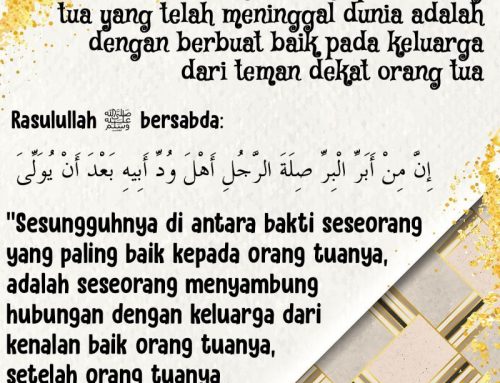 tua yang telah meninggal dunia adalah
dengan berbuat baik pada keluarga
dari teman dekat orang tua
Rasulullah ﷺ bersabda:
إِنَّ مِنْ أَبَرِّ الْبِرِّ صِلَةَ الرَّجُلِ أَهْلَ وُدِّ أَبِيهِ بَعْدَ أَنْ يُوَلِّىَ
"Sesungguhnya di antara bakti seseorang
yang paling baik kepada orang tuanya,
adalah seseorang menyambung
hubungan dengan keluarga dari
kenalan baik orang tuanya,
setelah orang tuanya